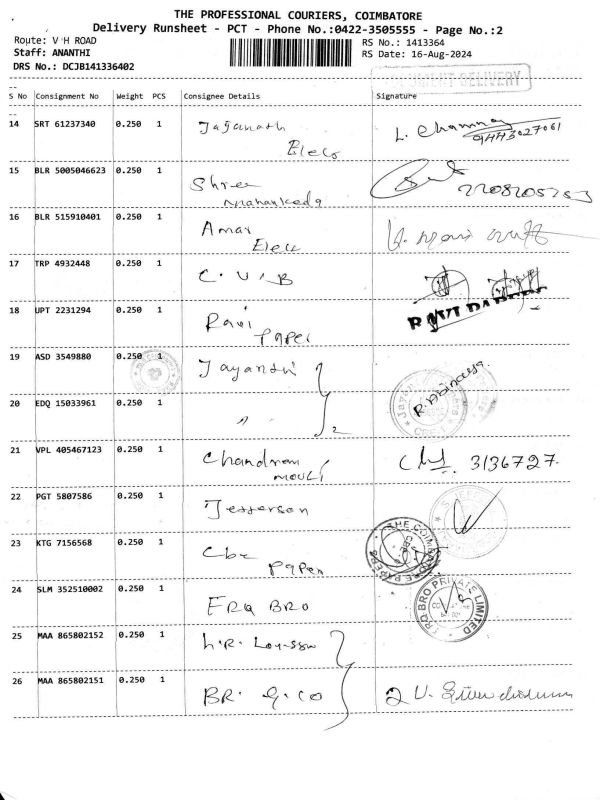 THE PROFESSIONAL COURIERS, COIMBATORE
Delivery Runsheet - PCT - Phone No.:0422-3505555 - Page No.:2
Route: V H ROAD
RS No.: 1413364
Staff: ANANTHI
RS Date: 16-Aug-2024
DRS No.: DCJB141336402
DELIVERY
S No Consignment No Weight PCS Consignee Details Signature
14 SRT 61237340 0.250 1 Jaganath
Elecs
15 BLR 5005046623 0.250 1 Shree
16 BLR 515910401 0.250 1 Amar
Elecs
17 TRP 4932448 0.250 1 C.U.B
18 UPT 2231294 0.250 1 Ravi
Paper
RAVI PAPERS
19 ASD 3549880 0.250 1 Jayanthi
R. Abinaya
20 EDQ 15033961 0.250 1 " 2
21 VPL 405467123 0.250 1 Chandran 3136727.
Mouli
22 PGT 5807586 0.250 1 Jefferson
23 KTG 7156568 0.250 1 Cbe
Paper
THE COIMBATORE PAPERS
24 SLM 352510002 0.250 1 ERQ BRO
BRO PRIVATE LIMITED
25 MAA 865802152 0.250 1 L.R.
26 MAA 865802151 0.250 1 BR. G. CO 2